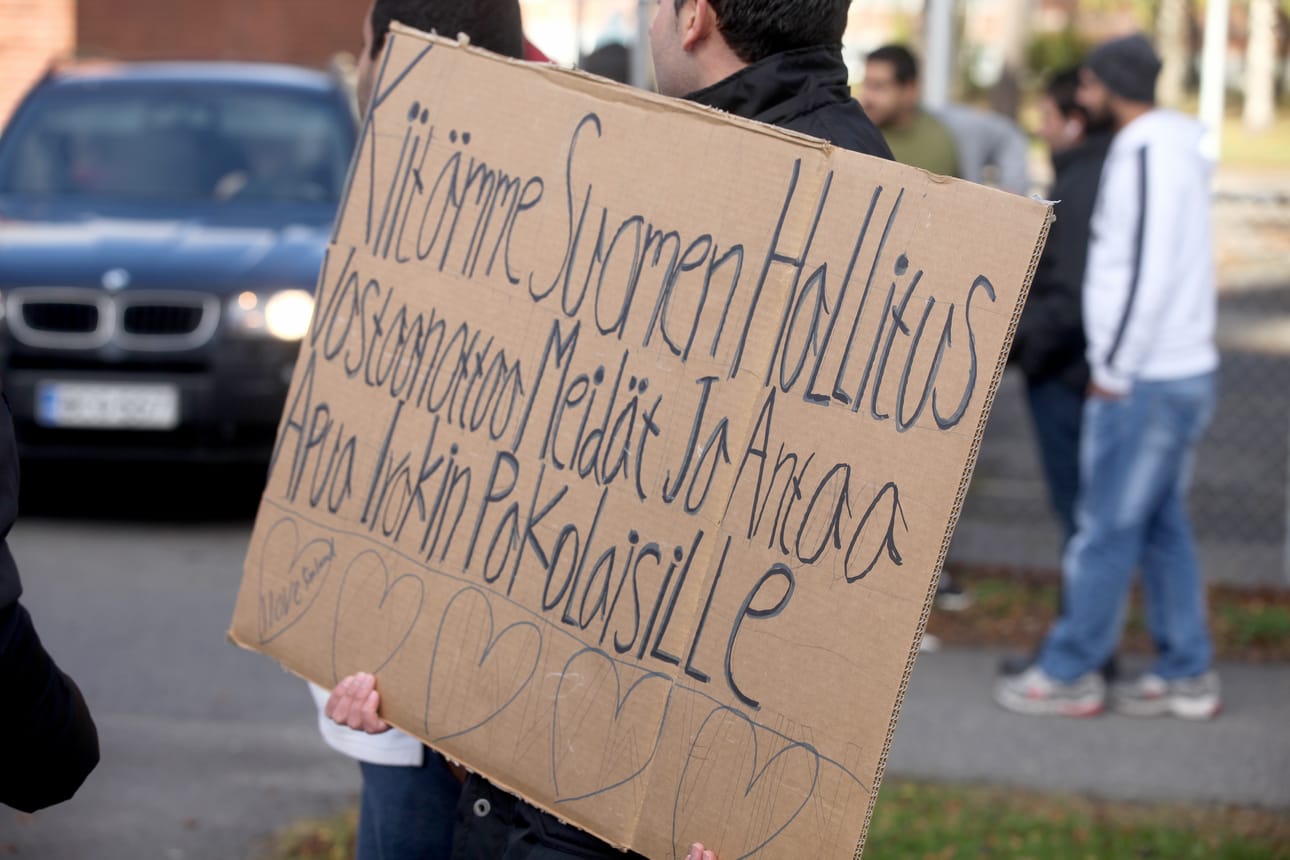 Kiitämme Suomen Hallitus
Vastaanottaa Meidät Ja Antaa
Apua Irakin Pakolaisille